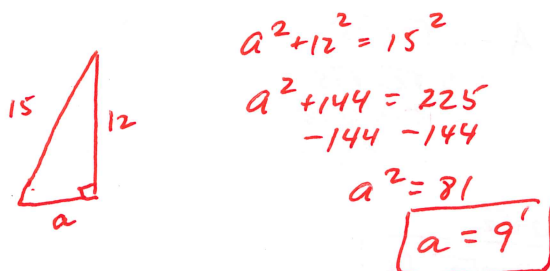 15
12
a
a² + 12² = 15²
a² + 144 = 225
-144 -144
a² = 81
a = 9'